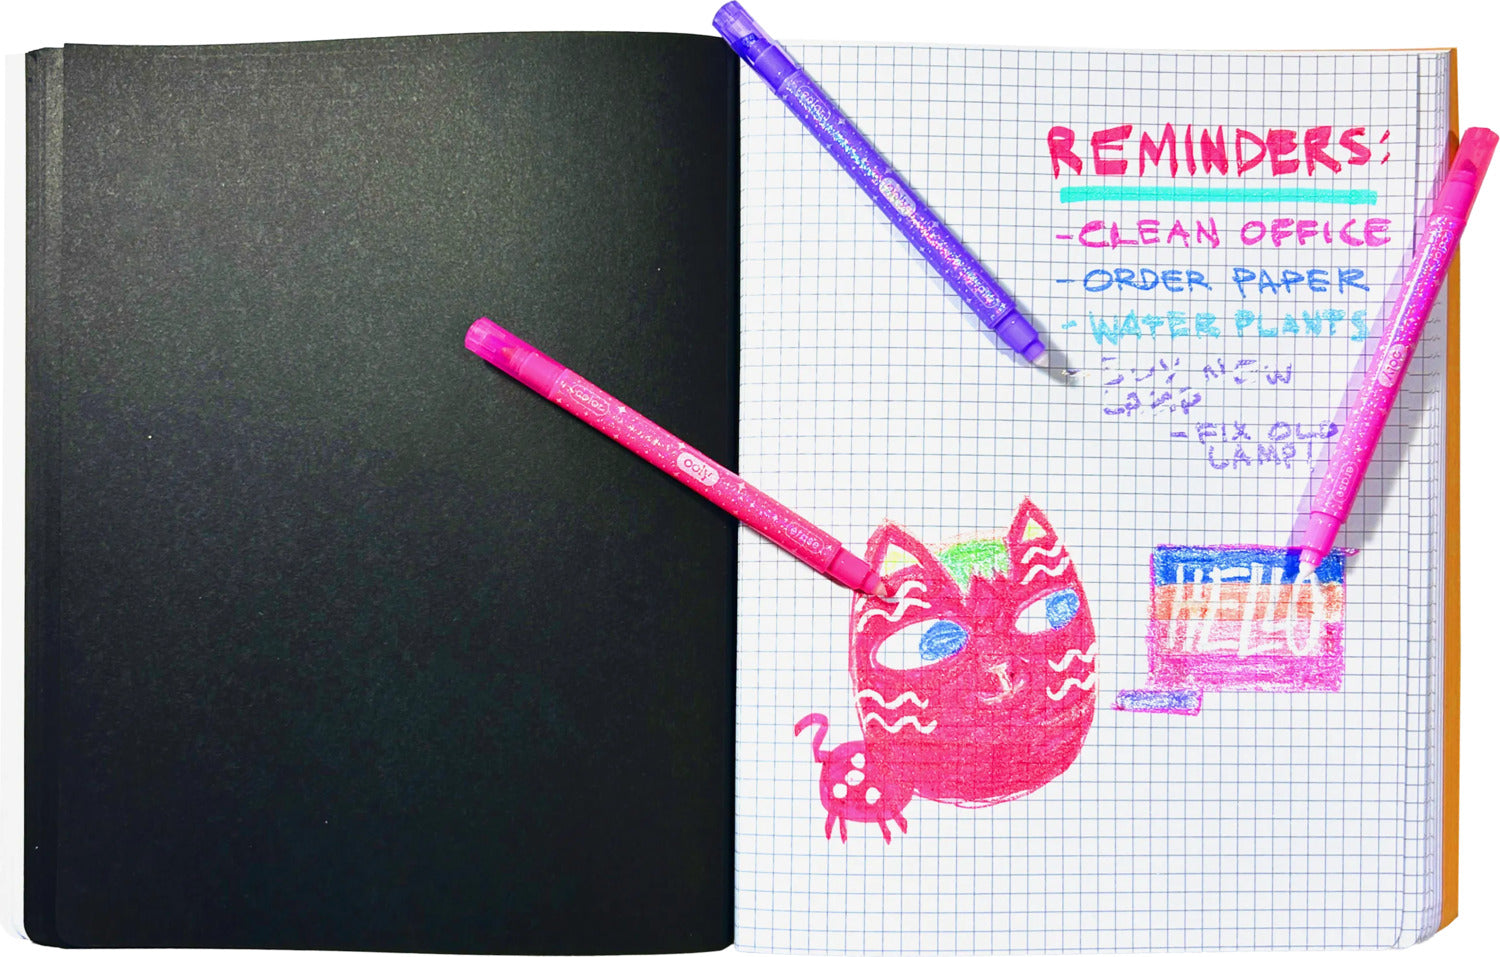 REMINDERS:
- CLEAN OFFICE
- ORDER PAPER
- WATER PLANTS
BUY NEW
LAMP
- FIX OLD
LAMP!
HELLO
color
ooly
erase
color
ooly
erase
color
ooly
erase